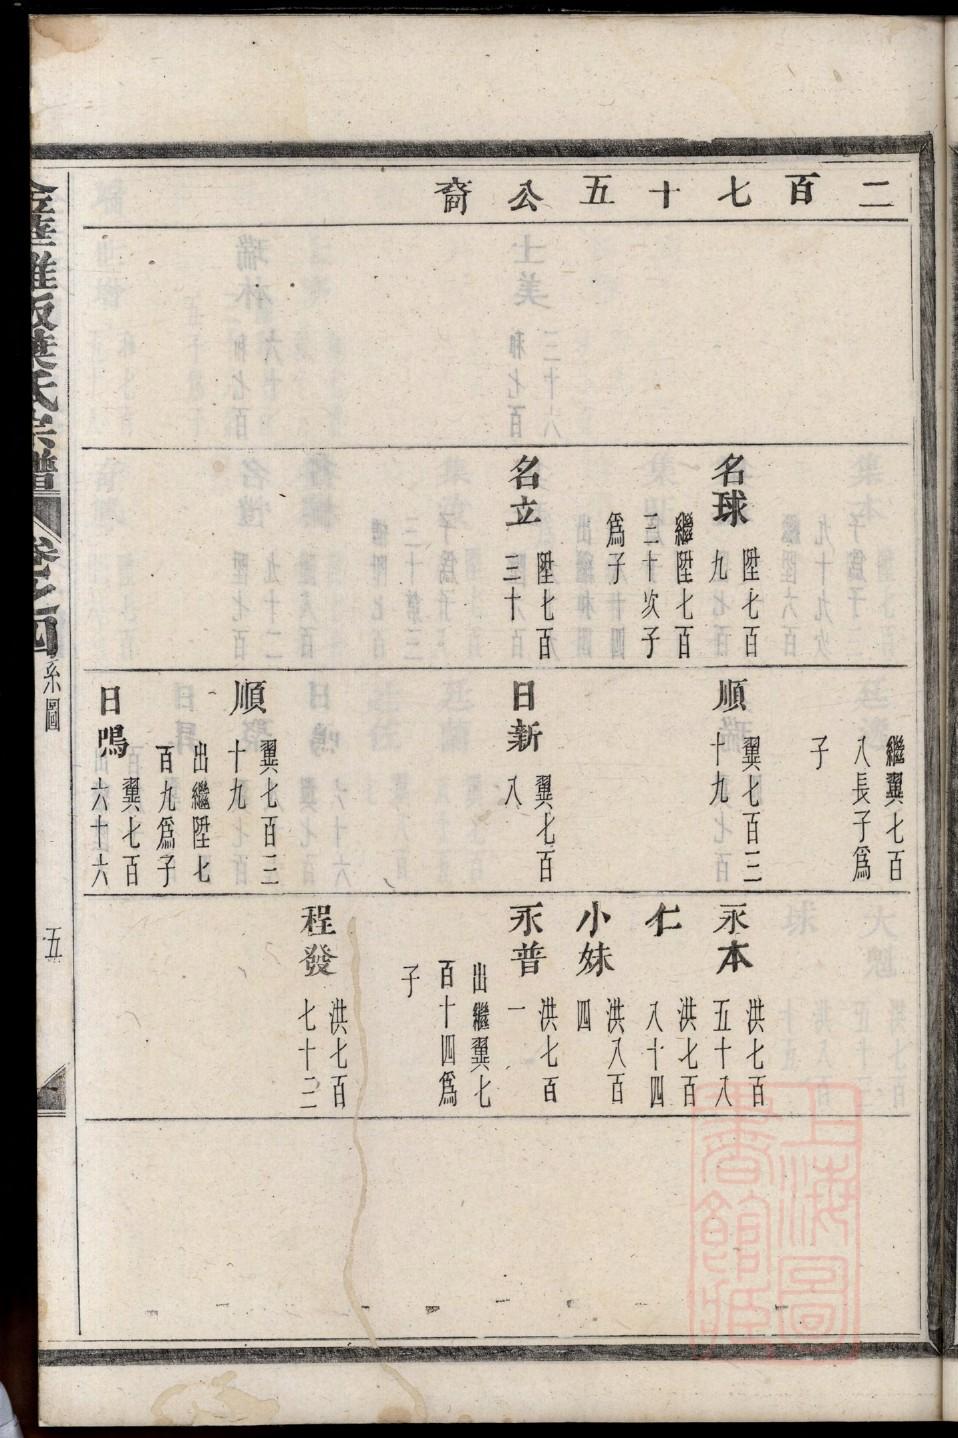 二百七十五公裔
名球
陞七百
九
繼陞七百
三十次子
爲子
名立
陞七百
三十
繼翼七百
八長子爲
子
順瑞
翼七百三
十九
日新
翼七百
八
順
翼七百三
十九
出繼陞七
百九爲子
日鳴
翼七百
六十六
永本
洪七百
五十八
仁
洪七百
八十四
小妹
洪八百
四
永普
洪七百
一
出繼翼七
百十四爲
子
程發
洪七百
七十二
金華雅畈葉氏宗譜
卷之四
系圖
五
上海圖
書館藏